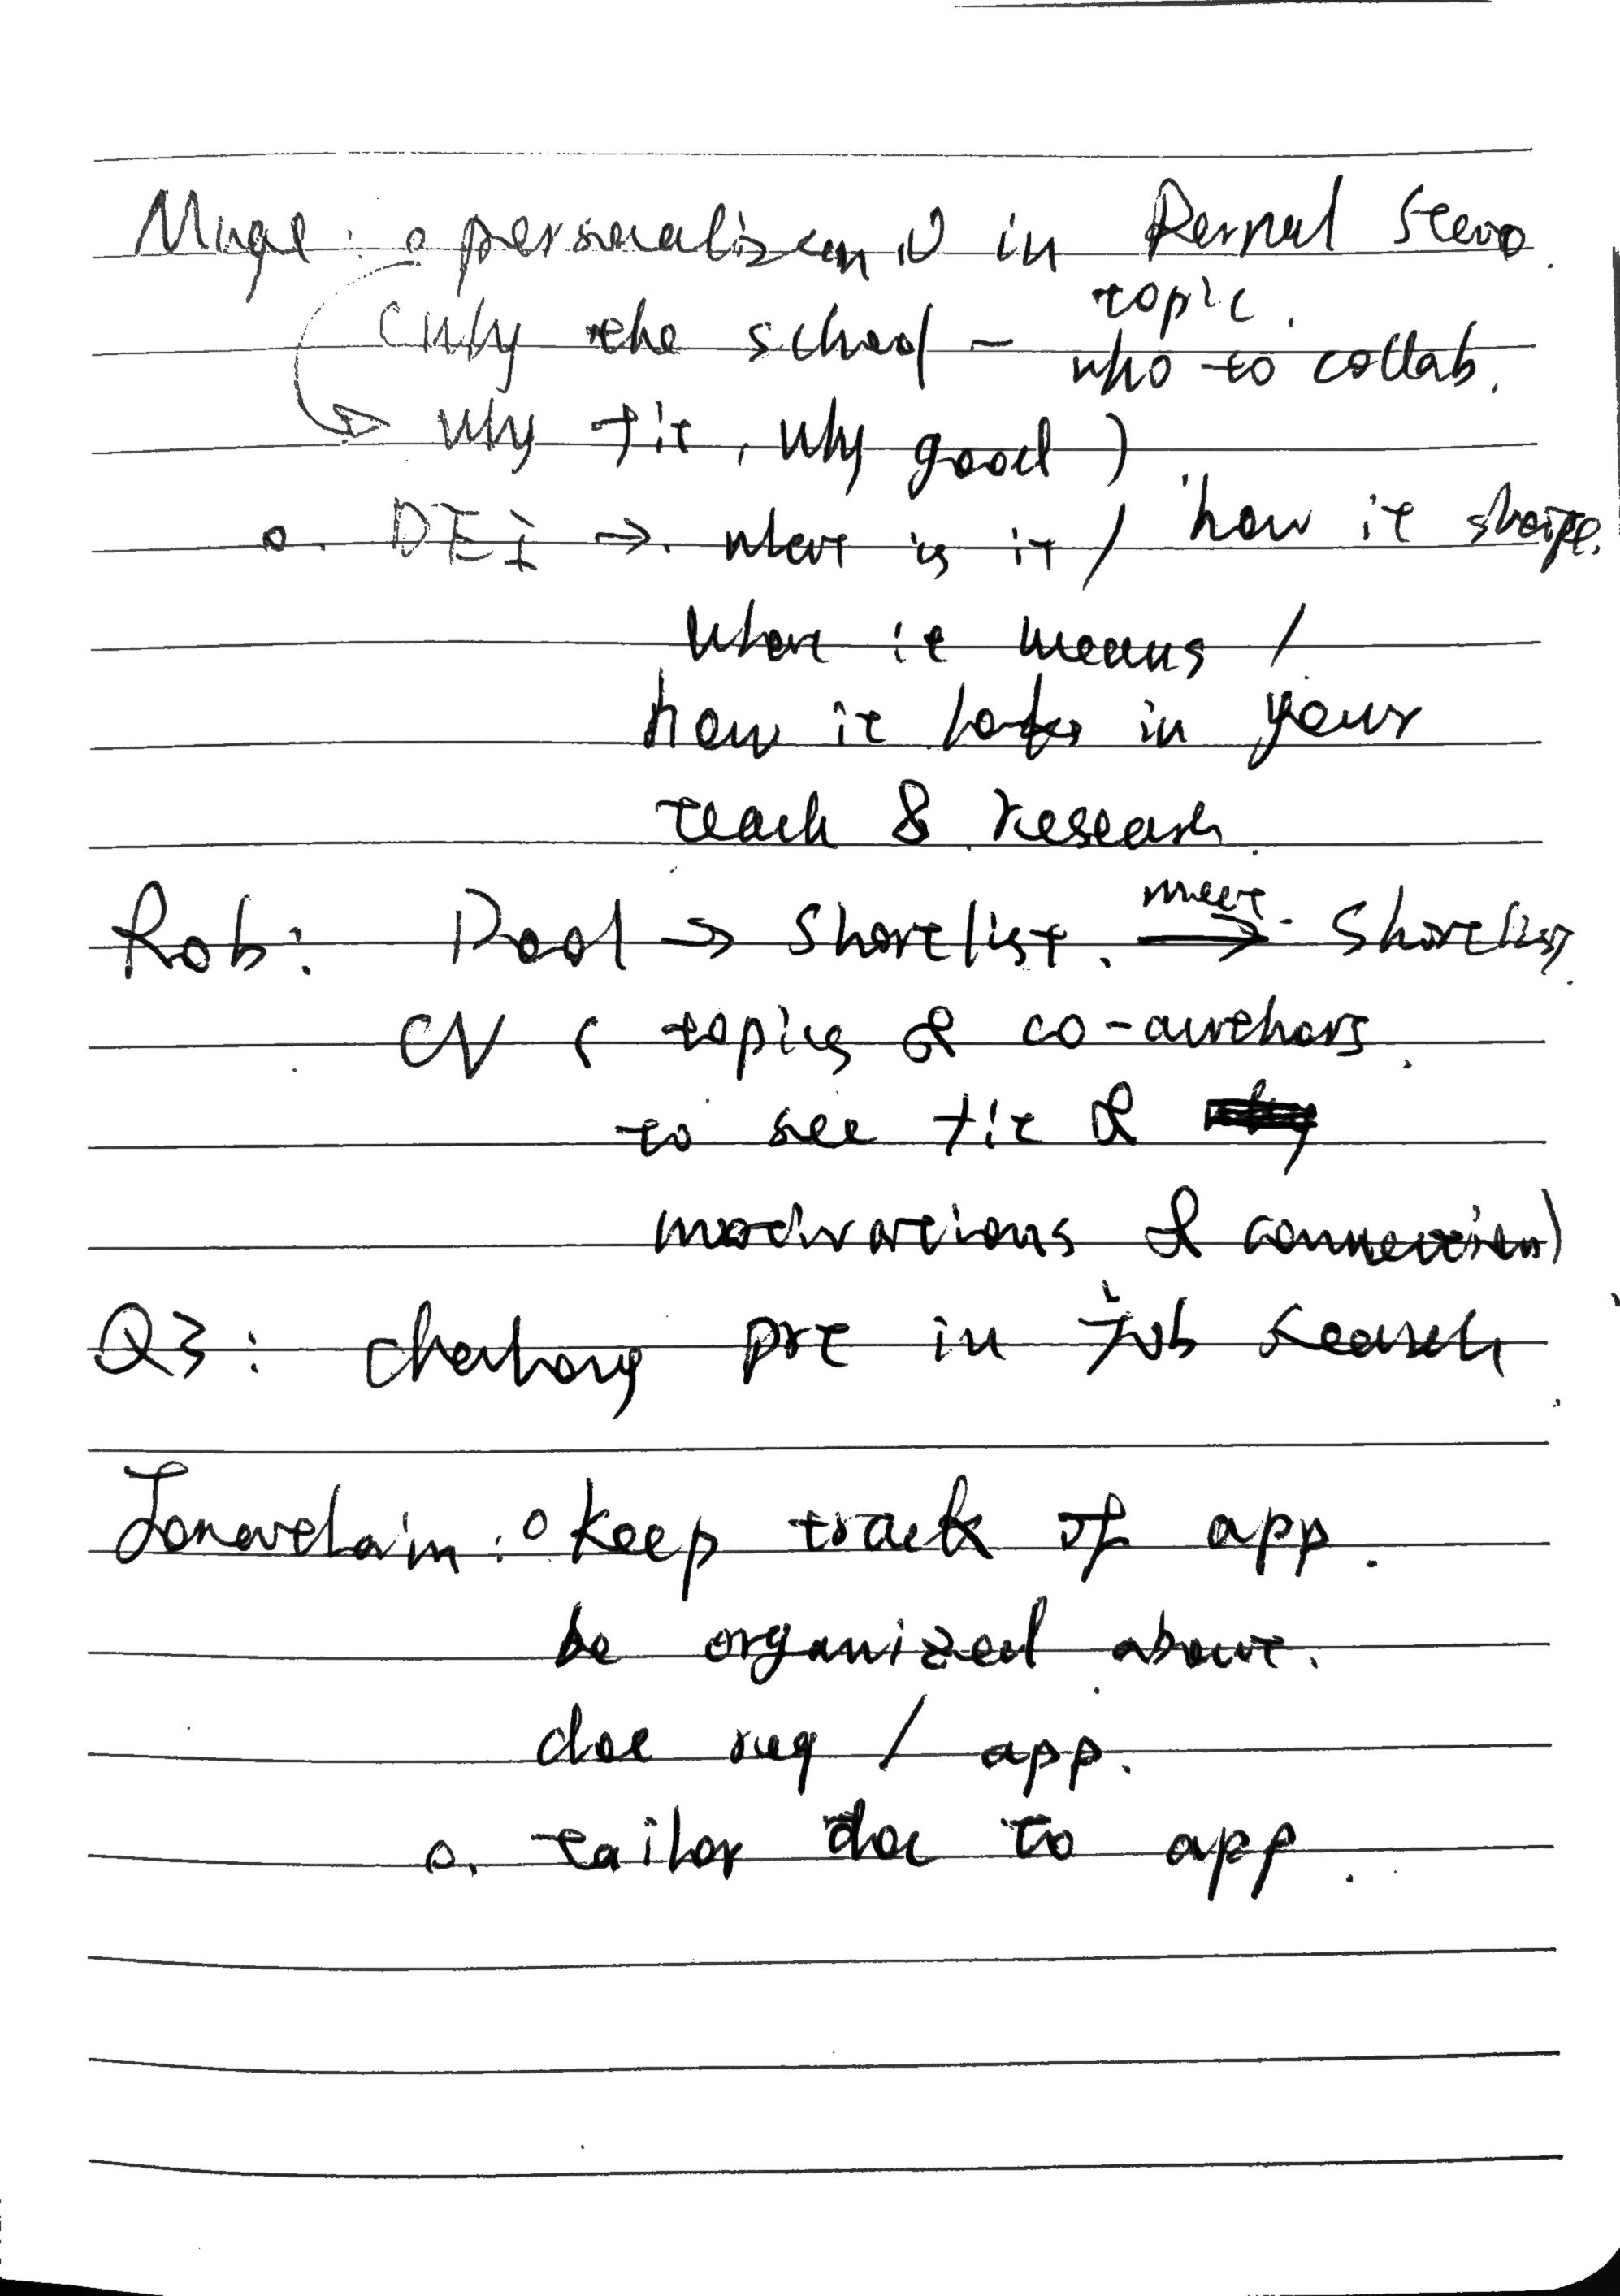 : o personalization in
topic.
(why the school - who to collab.
why fit, why good)
o. DEI → what is it / how it shape.
what it means /
how it looks in your
teach & research.
Rob: Pool → Shortlist. meet → Shortlist.
CV ( topics & co-authors.
to see fit &
motivations & connection)
Q3: challeng prt in job search
: o keep track of app.
be organized about.
doc req / app.
o. tailor doc to app.